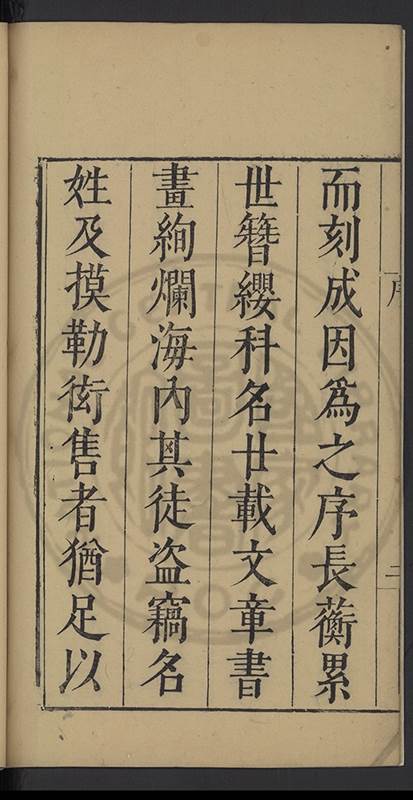 序
二
而刻成因爲之序長蘅累
世簪纓科名廿載文章書
畫絢爛海內其徒盜竊名
姓及摸勒衒售者猶足以